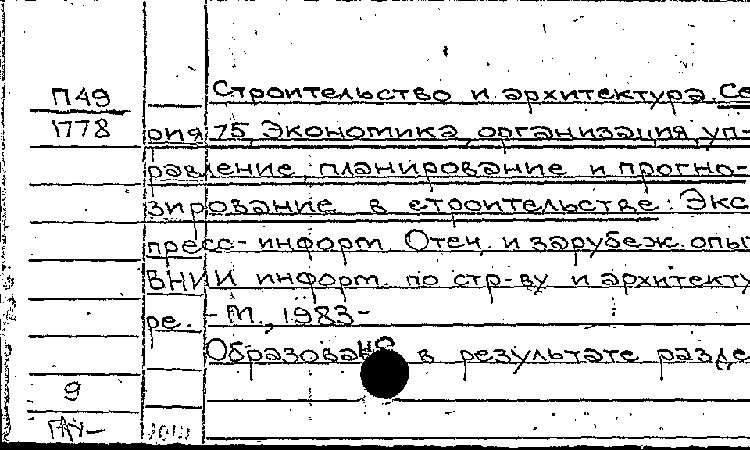 П49
1778
Строительство и архитектура. Се
рия 75, Экономика, организация, уп-
равление, планирование и прогно-
зирование в строительстве: Экс
пресс-информ. Отеч. и зарубеж. опы
ВНИИ информ. по стр-ву и архитекту
ре. - М., 1983-
Образовано в результате разде
9